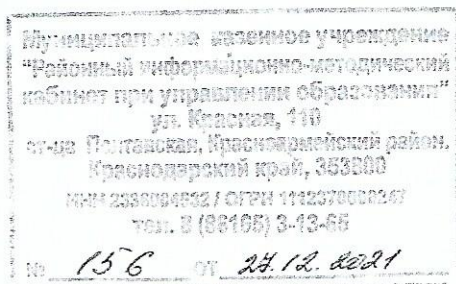 Муниципальное казенное учреждение
"Районный информационно-методический
кабинет при управлении образования"
ул. Красная, 110
ст-ца Полтавская, Красноармейский район,
Краснодарский край, 353800
ИНН / ОГРН
тел. 8 (86165) 3-13-65
№ 156 от 27.12.2021